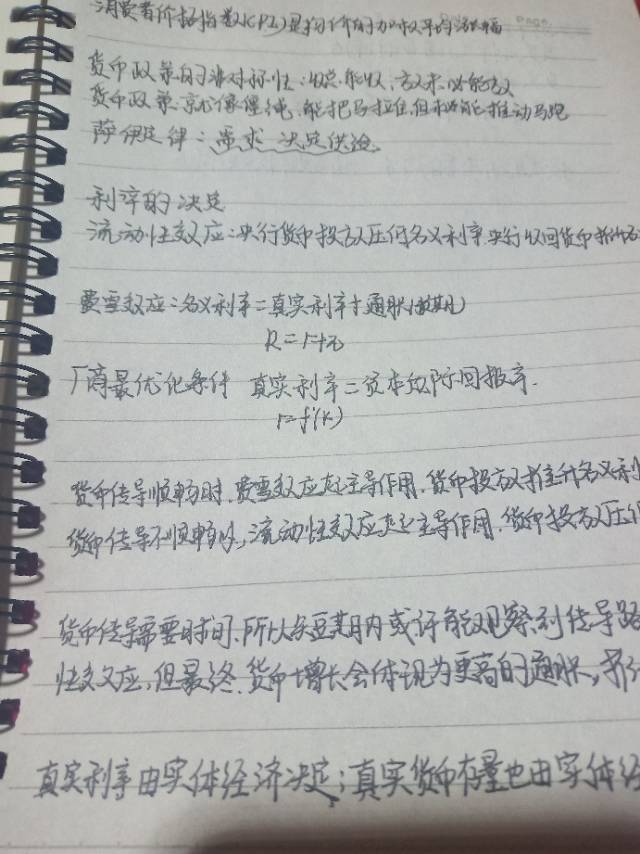 消费者价格指数(CPI)是物价的加权平均涨幅
货币政策的非对称性：收总能收，放未必能放
货币政策就像缰绳，能把马拉住，但不能推动马跑
萨伊定律：需求决定供给
利率的决定
流动性效应：央行货币投放压低名义利率，央行收回货币
费雪效应：名义利率=真实利率+通胀(预期)
R=r+π
厂商最优化条件 真实利率=资本边际回报率.
r=f'(k)
货币传导顺畅时，费雪效应起主导作用，货币投放推升名义利
货币传导不顺畅时，流动性效应起主导作用，货币投放压
货币传导需要时间，所以在短期内或许能观察到传导
性效应，但最终，货币增长会体现为更高的通胀，
真实利率由实体经济决定；真实货币存量也由实体经